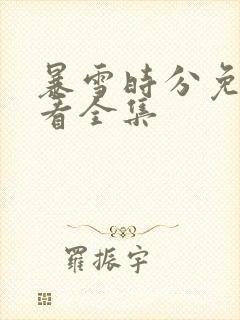 暴雪时分免
看全集
羅振宇